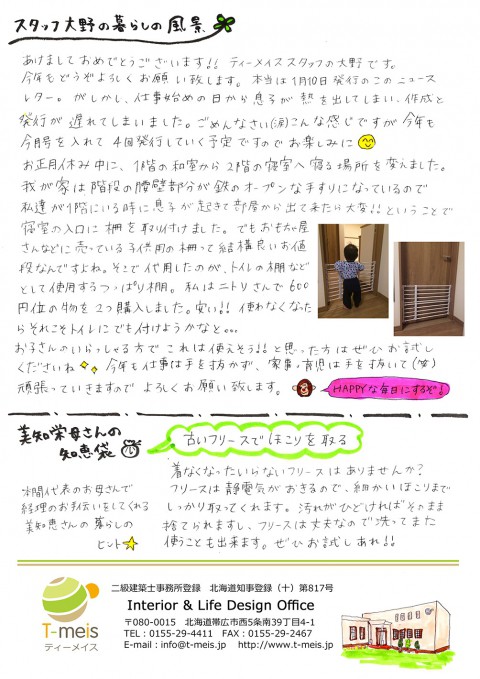 スタッフ大野の暮らしの風景
あけましておめでとうございます!! ティーメイススタッフの大野です。
今年もどうぞよろしくお願い致します。本当は1月10日発行のこのニュース
レター。がしかし、仕事始めの日から息子が熱を出してしまい、作成と
発行が遅れてしまいました。ごめんなさい(涙)こんな感じですが今年も
今月号を入れて4回発行していく予定ですのでお楽しみに
お正月休み中に、1階の和室から2階の寝室へ寝る場所を変えました。
我が家は階段の腰壁部分が鉄のオープンな手すりになっているので
私達が1階にいる時に息子が起きて部屋から出て来たら大変!!ということで
寝室の入口に柵を取り付けました。でもおもちゃ屋
さんなどに売っている子供用の柵って結構良いお値
段なんですよね。そこで代用したのが、トイレの棚など
として使用するつっぱり棚。私はニトリさんで600
円位の物を2つ購入しました。安い!! 使わなくなった
らそれこそトイレにでも付けようかなと…
お子さんのいらっしゃる方でこれは使えそう!!と思った方はぜひお試し
くださいね 今年も仕事は手を抜かず、家事・育児は手を抜いて(笑)
頑張っていきますのでよろしくお願い致します。 HAPPYな毎日にするぞ!
美知栄母さんの
知恵袋
古いフリースでほこりを取る
本間代表のお母さんで
経理のお手伝いをしてくれる
美知恵さんの暮らしの
ヒント
着なくなったいらないフリースはありませんか?
フリースは静電気がおきるので、細かいほこりまで
しっかり取ってくれます。汚れがひどければそのまま
捨てられますし、フリースは丈夫なので洗ってまた
使うことも出来ます。ぜひお試しあれ!!
T-meis
ティーメイス
二級建築士事務所登録 北海道知事登録(十)第817号
Interior & Life Design Office
〒080-0015 北海道帯広市西5条南39丁目4-1
TEL : 0155-29-4411 FAX : 0155-29-2467
E-mail : info@t-meis.jp http://www.t-meis.jp